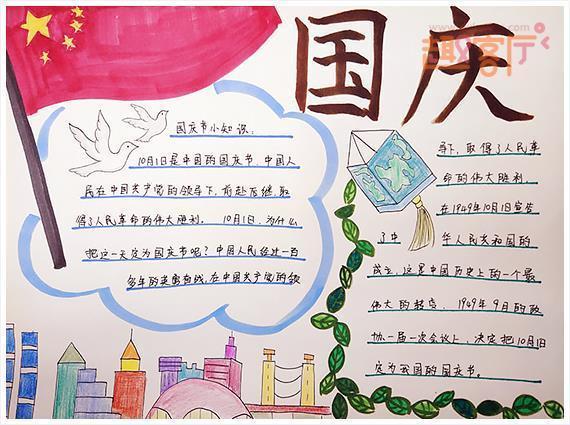 国庆
趣客厅
国庆节小知识:
10月1日是中国的国庆节,中国人
民在中国共产党的领导下,前赴后继,取
得了人民革命的伟大胜利。 10月1日,为什么
把这一天定为国庆节呢?中国人民经过一百
多年的英勇奋战,在中国共产党的领
导下,取得了人民革
命的伟大胜利,
在1949年10月1日宣告
了中 华人民共和国的
成立,这是中国历史上的一个最
伟大的转变。1949年9月的政
协一届一次会议上,决定把10月1日
定为我国的国庆节。